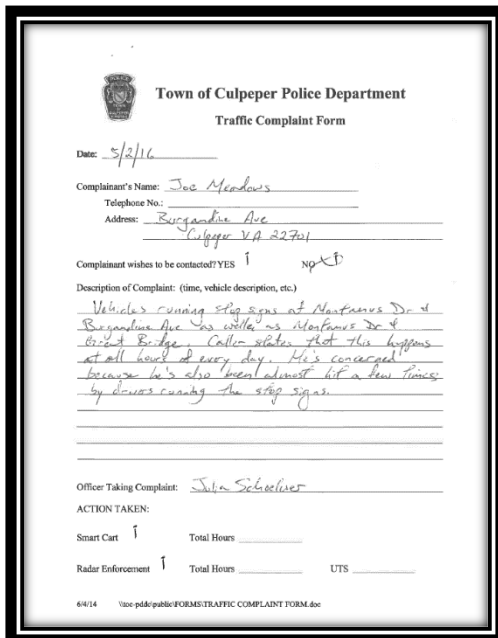 Town of Culpeper Police Department
Traffic Complaint Form
Date: 5/2/16
Complainant's Name: Joe Meadows
Telephone No.:
Address: Burgandine Ave
Culpeper VA 22701
Complainant wishes to be contacted? YES NO
Description of Complaint: (time, vehicle description, etc.)
Vehicles running stop signs at Dr &
Burgandine Ave as weller as Dr &
Bridge. Caller states that this happens
at all hours of every day. He's concerned
because he's also been almost hit a few times
by drivers running the stop signs.
Officer Taking Complaint: Julia
ACTION TAKEN:
Smart Cart Total Hours
Radar Enforcement Total Hours UTS
6/4/14 \\toc-pddc\public\FORMS\TRAFFIC COMPLAINT FORM.doc